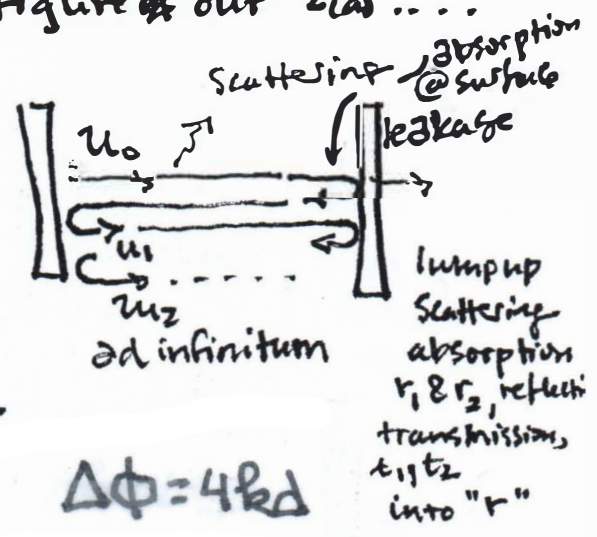 Figure out
scattering absorption
@ surface
leakage
u₀
u₁
u₂
ad infinitum
lump up
scattering
absorption
r₁ & r₂, reflecti
transmission,
t₁, t₂
into "r"
Δϕ = 4kd